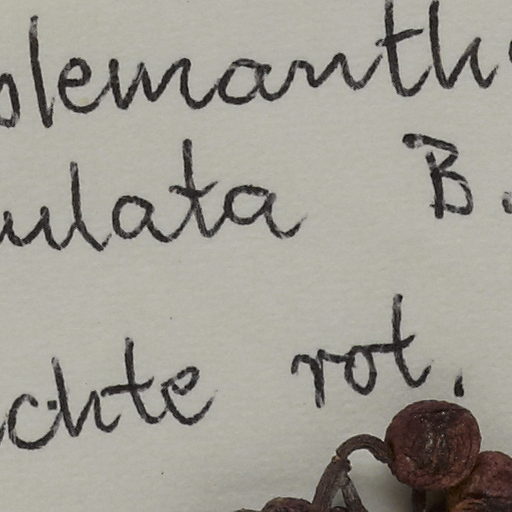 olemanth
ulata B.
chte rot.